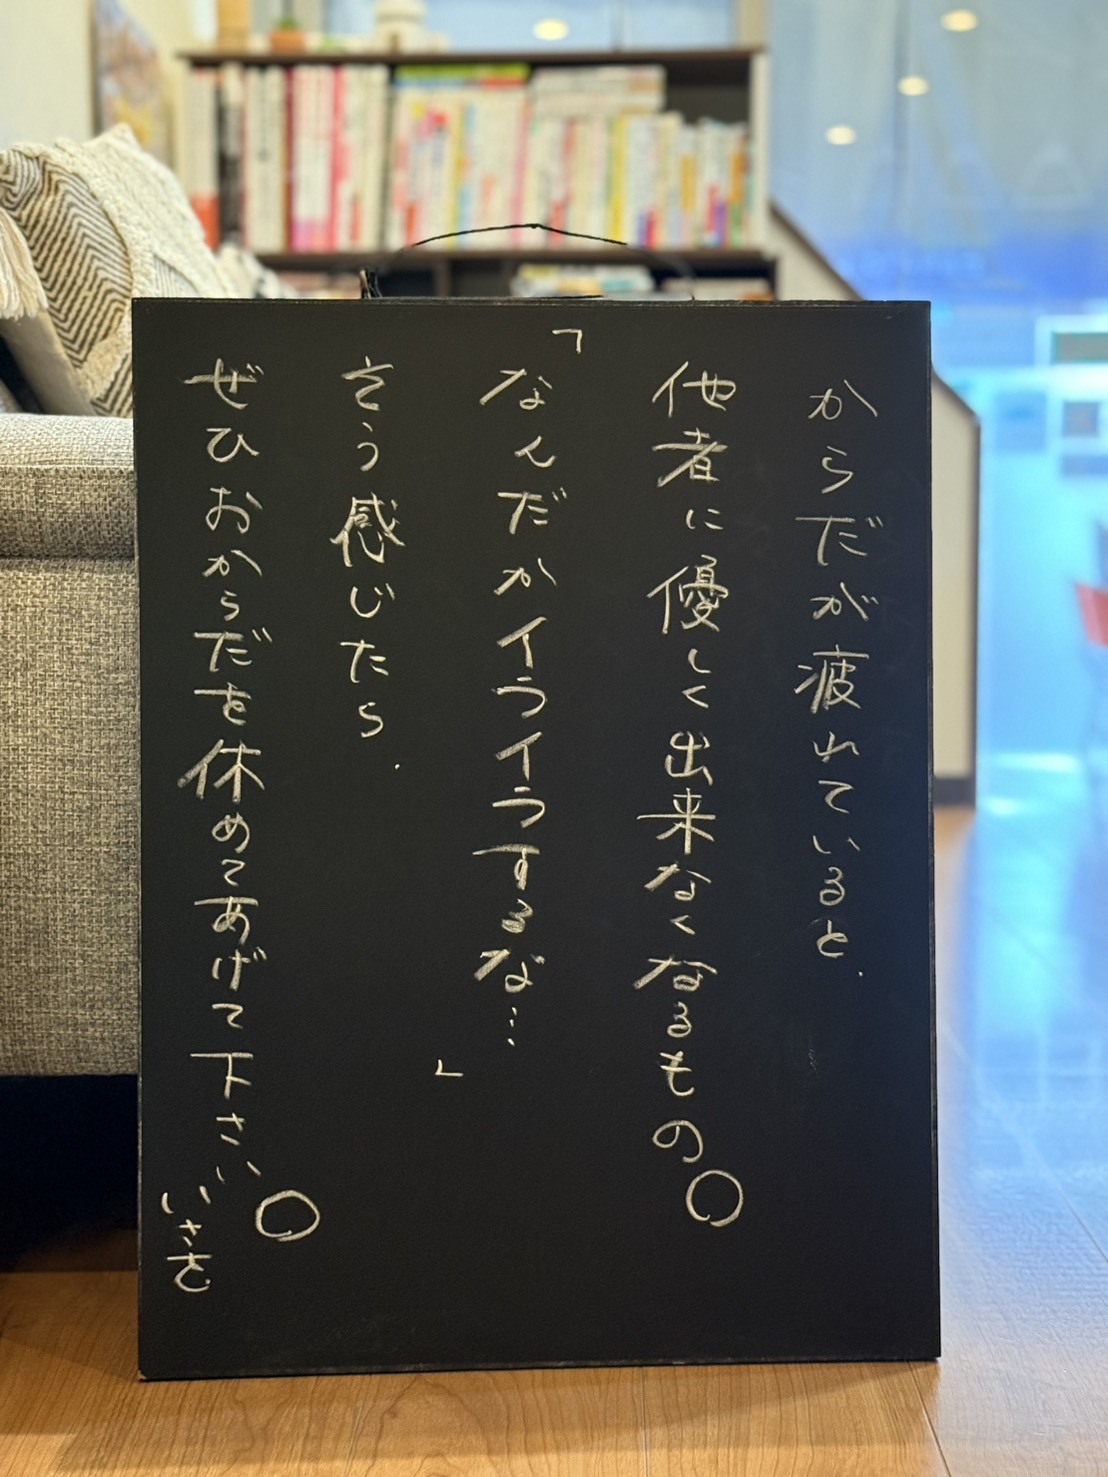 からだが疲れていると、
他者に優しく出来なくなるもの。
「なんだかイライラするな…」
そう感じたら、
ぜひおからだを休めてあげて下さい。
いさを